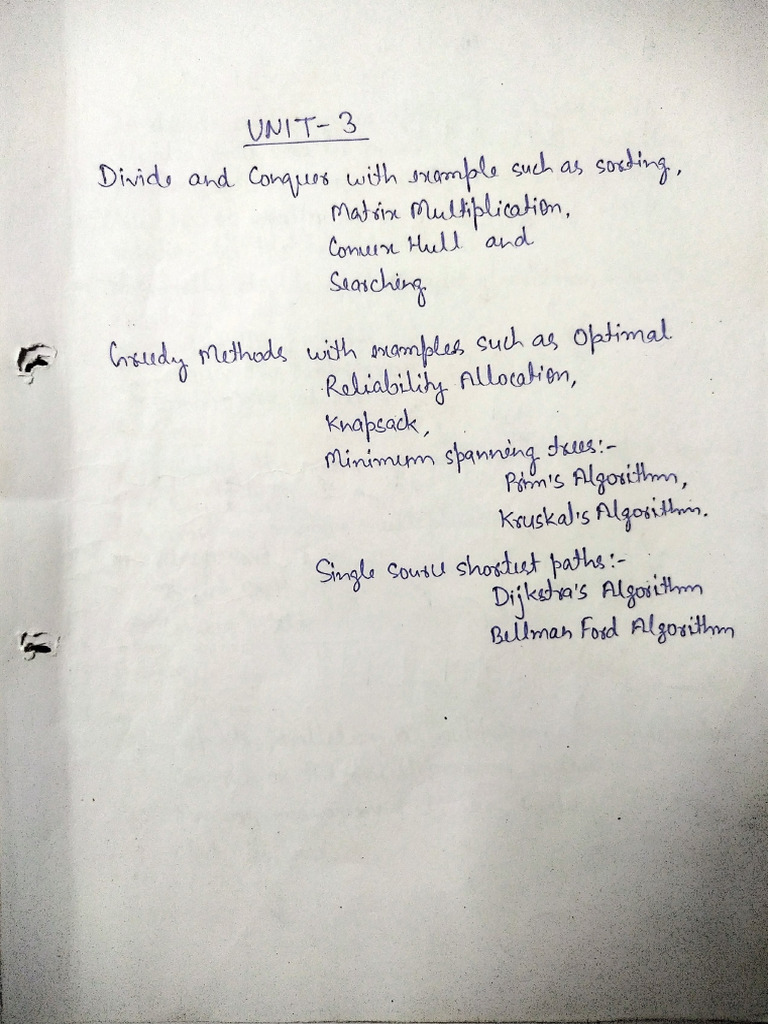 UNIT-3
Divide and Conquer with example such as sorting,
Matrix Multiplication,
Convex Hull and
Searching
Greedy Methods with examples such as Optimal
Reliability Allocation,
Knapsack,
Minimum spanning trees:-
Prim's Algorithm,
Kruskal's Algorithm.
Single source shortest paths:-
Dijkstra's Algorithm
Bellman Ford Algorithm